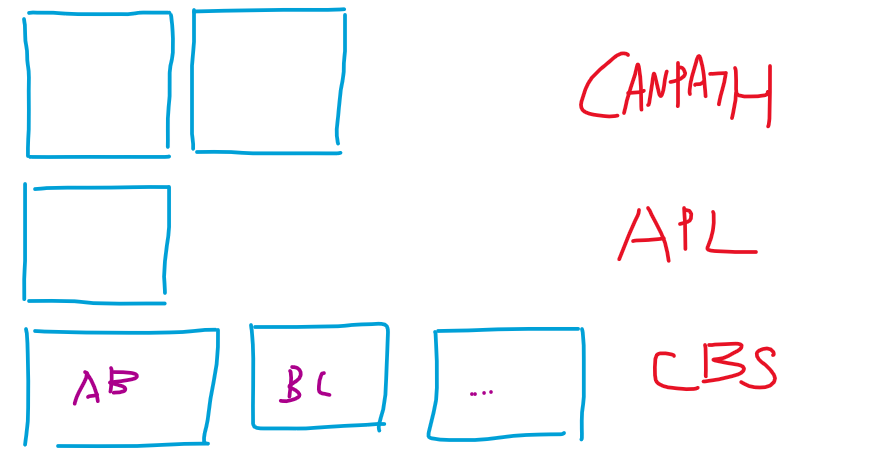 CANPATH
APL
AB BC ... CBS